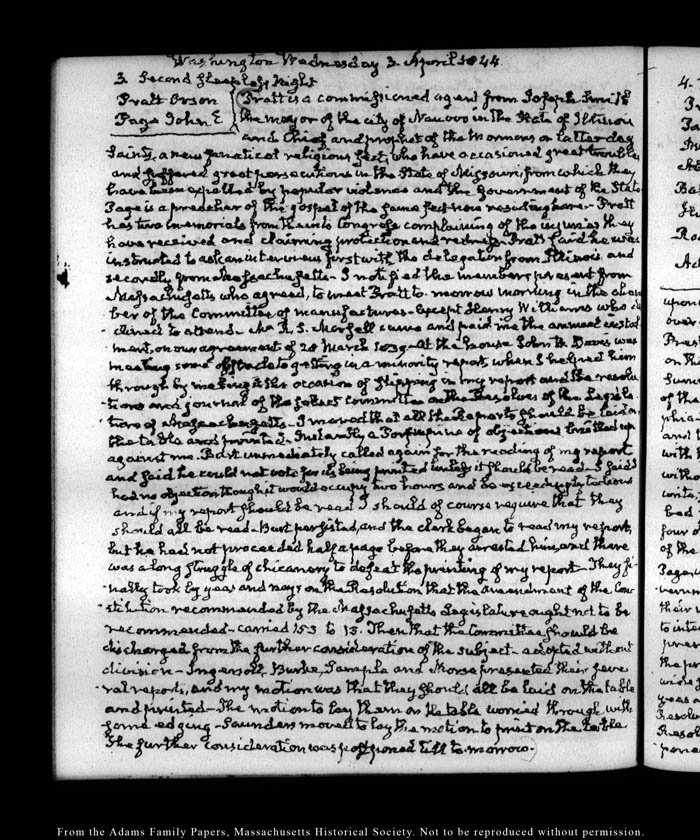 Washington Wednesday 3. April 1844
3. Second sleepless Night
Pratt Orson
Page John E
Pratt is a commissioned agent from Joseph Smith
the mayor of the city of Nauvoo in the State of Illinois
and Chief and prophet of the Mormons or latter day
Saints, a new fanatical religious sect, who have occasioned great trouble
and suffered great persecutions in the State of Missouri, from which they
have been expelled by popular violence and the Government of the State
Page is a preacher of the gospel of the same sect now residing here. Pratt
has two memorials from them to Congress complaining of the injuries they
have received and claiming protection and redress. Pratt said he was
instructed to ask an interview first with the delegation from Illinois and
secondly from Massachusetts - I notified the members present from
Massachusetts who agreed, to meet Pratt to-morrow morning in the cham
ber of the Committee of manufactures - except Henry Williams who de
clined to attend - Mr R. S. Morsell came and paid me the annual instal
ment, on our agreement of 20 March 1839 - At the House John W. Davis was
meeting some obstacle to getting in a minority report, when I helped him
through by making it the occasion of slipping in my report and the resolu
tions and journal of the select Committee on the Resolves of the Legisla
ture of Massachusetts - I moved that all the Reports should be laid on
the table and printed - Instantly a Porcupine of objections bristled up
against me. Burt immediately called again for the reading of my report
and said he could not vote for its being printed unless it should be read - I said I
had no objection though it would occupy two hours and be exceedingly tedious
and if my report should be read I should of course require that they
should all be read - Burt persisted, and the clerk began to read my report,
but he had not proceeded half a page before they arrested him, and there
was a long struggle of chicanery to defeat the printing of my report - They fi-
nally took by yeas and nays on the Resolution that the amendment of the Con-
stitution recommended by the Massachusetts Legislature ought not to be
recommended - carried 153 to 13. Then that the Committee should be
discharged from the further consideration of the subject - adopted without
division - Ingersoll, Burke, Sample, and Morse presented their seve
ral reports, and my motion was that they should all be laid on the table
and printed - The motion to lay them on the table worried through with
some edging - Saunders moved to lay the motion to print on the table
The further consideration was postponed till to-morrow.
4.
upon
over
of the
and
with
had
four
of the
From the Adams Family Papers, Massachusetts Historical Society. Not to be reproduced without permission.